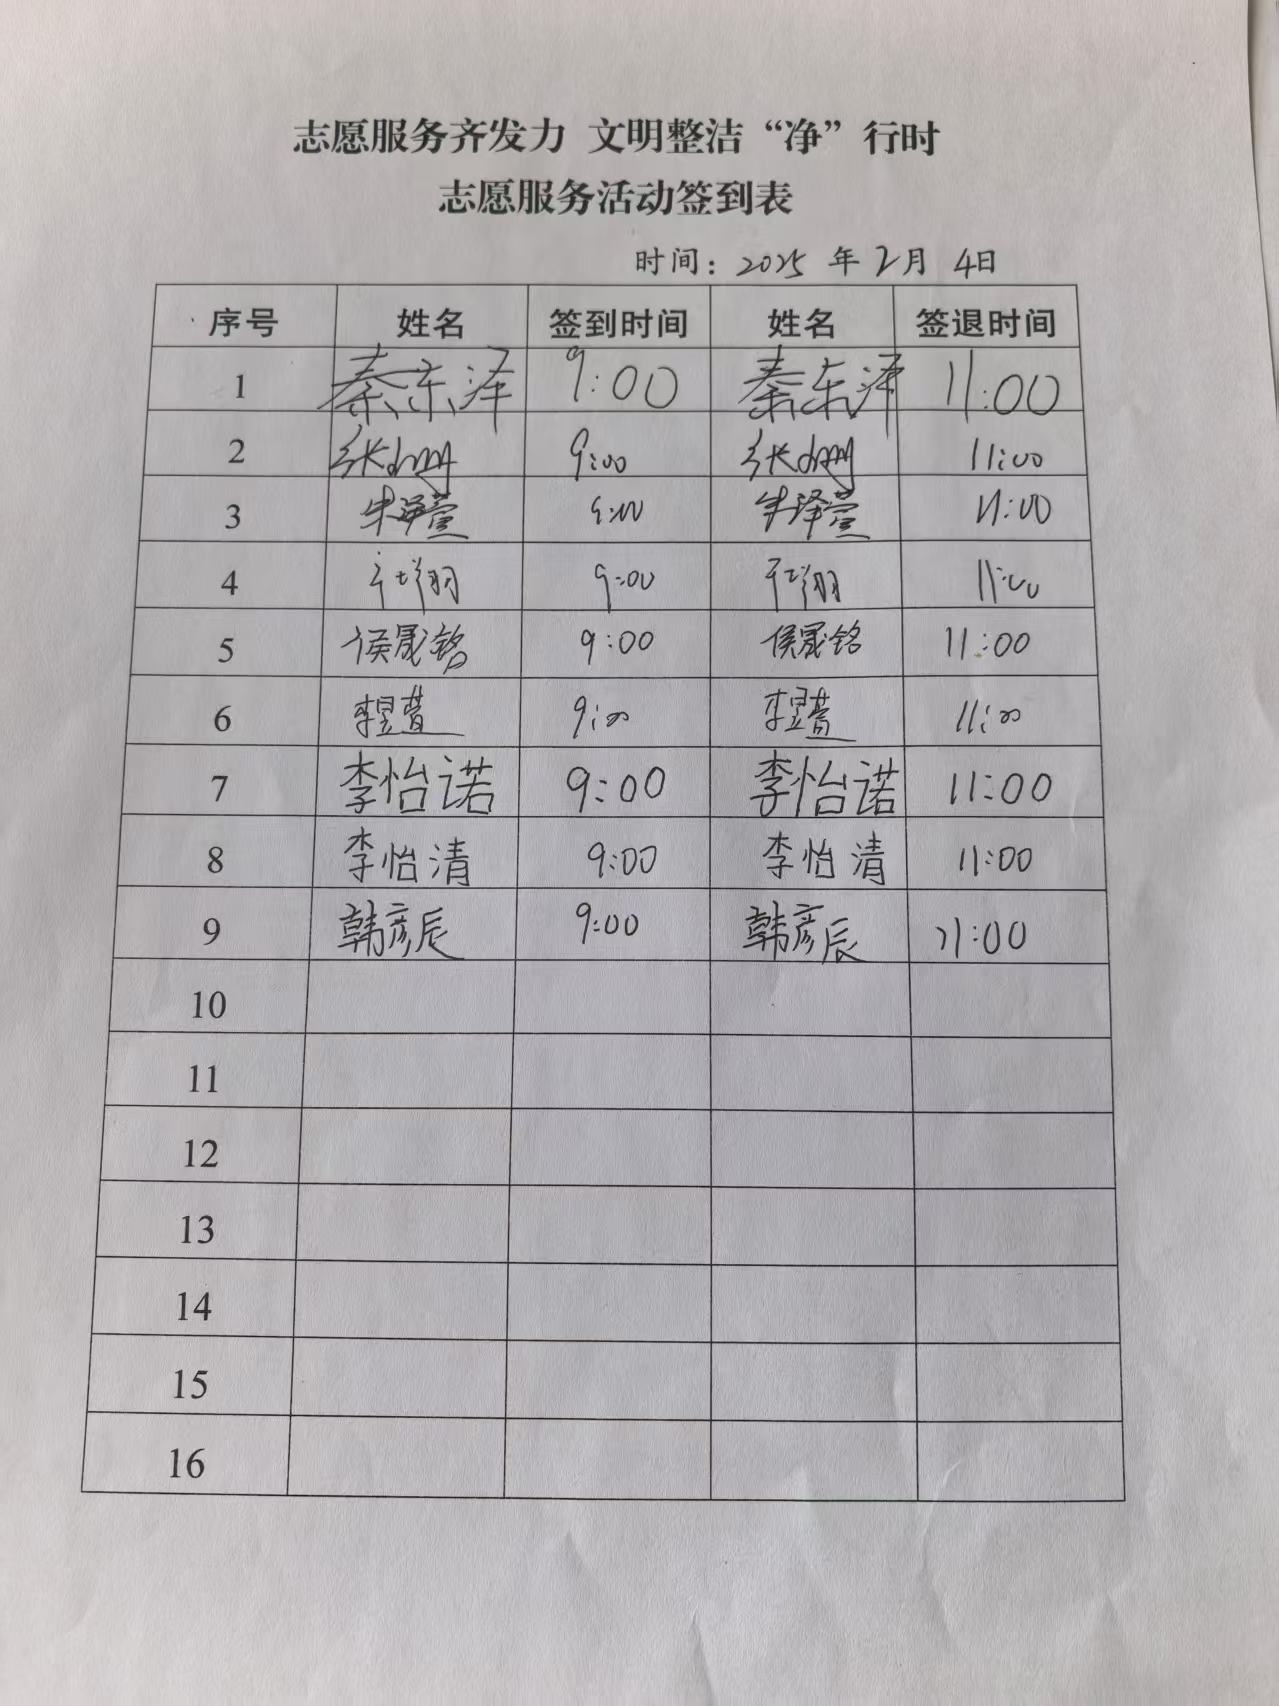 志愿服务齐发力 文明整洁“净”行时
志愿服务活动签到表
时间：2025 年 2月 4日
序号 姓名 签到时间 姓名 签退时间
1 秦东泽 9:00 秦东泽 11:00
2 张 9:00 张 11:00
3 朱泽萱 9:00 朱泽萱 11:00
4 翔 9:00 翔 11:00
5 侯晟铭 9:00 侯晟铭 11:00
6 李昱萱 9:00 李昱萱 11:00
7 李怡诺 9:00 李怡诺 11:00
8 李怡清 9:00 李怡清 11:00
9 韩彦辰 9:00 韩彦辰 11:00
10
11
12
13
14
15
16